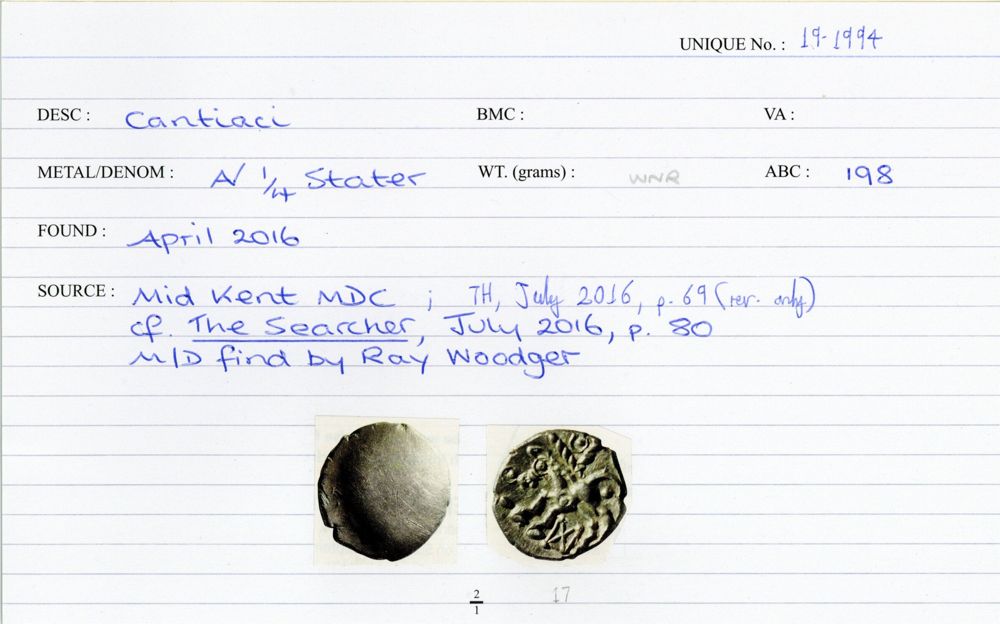 UNIQUE No. : 19-1994
DESC : Cantiaci BMC : VA :
METAL/DENOM : A/ 1/4 Stater WT. (grams) : WNR ABC : 198
FOUND : April 2016
SOURCE : Mid Kent MDC ; TH, July 2016, p. 69 (rev. only)
cf. The Searcher, July 2016, p. 80
M/D find by Ray Woodger
2/1 17